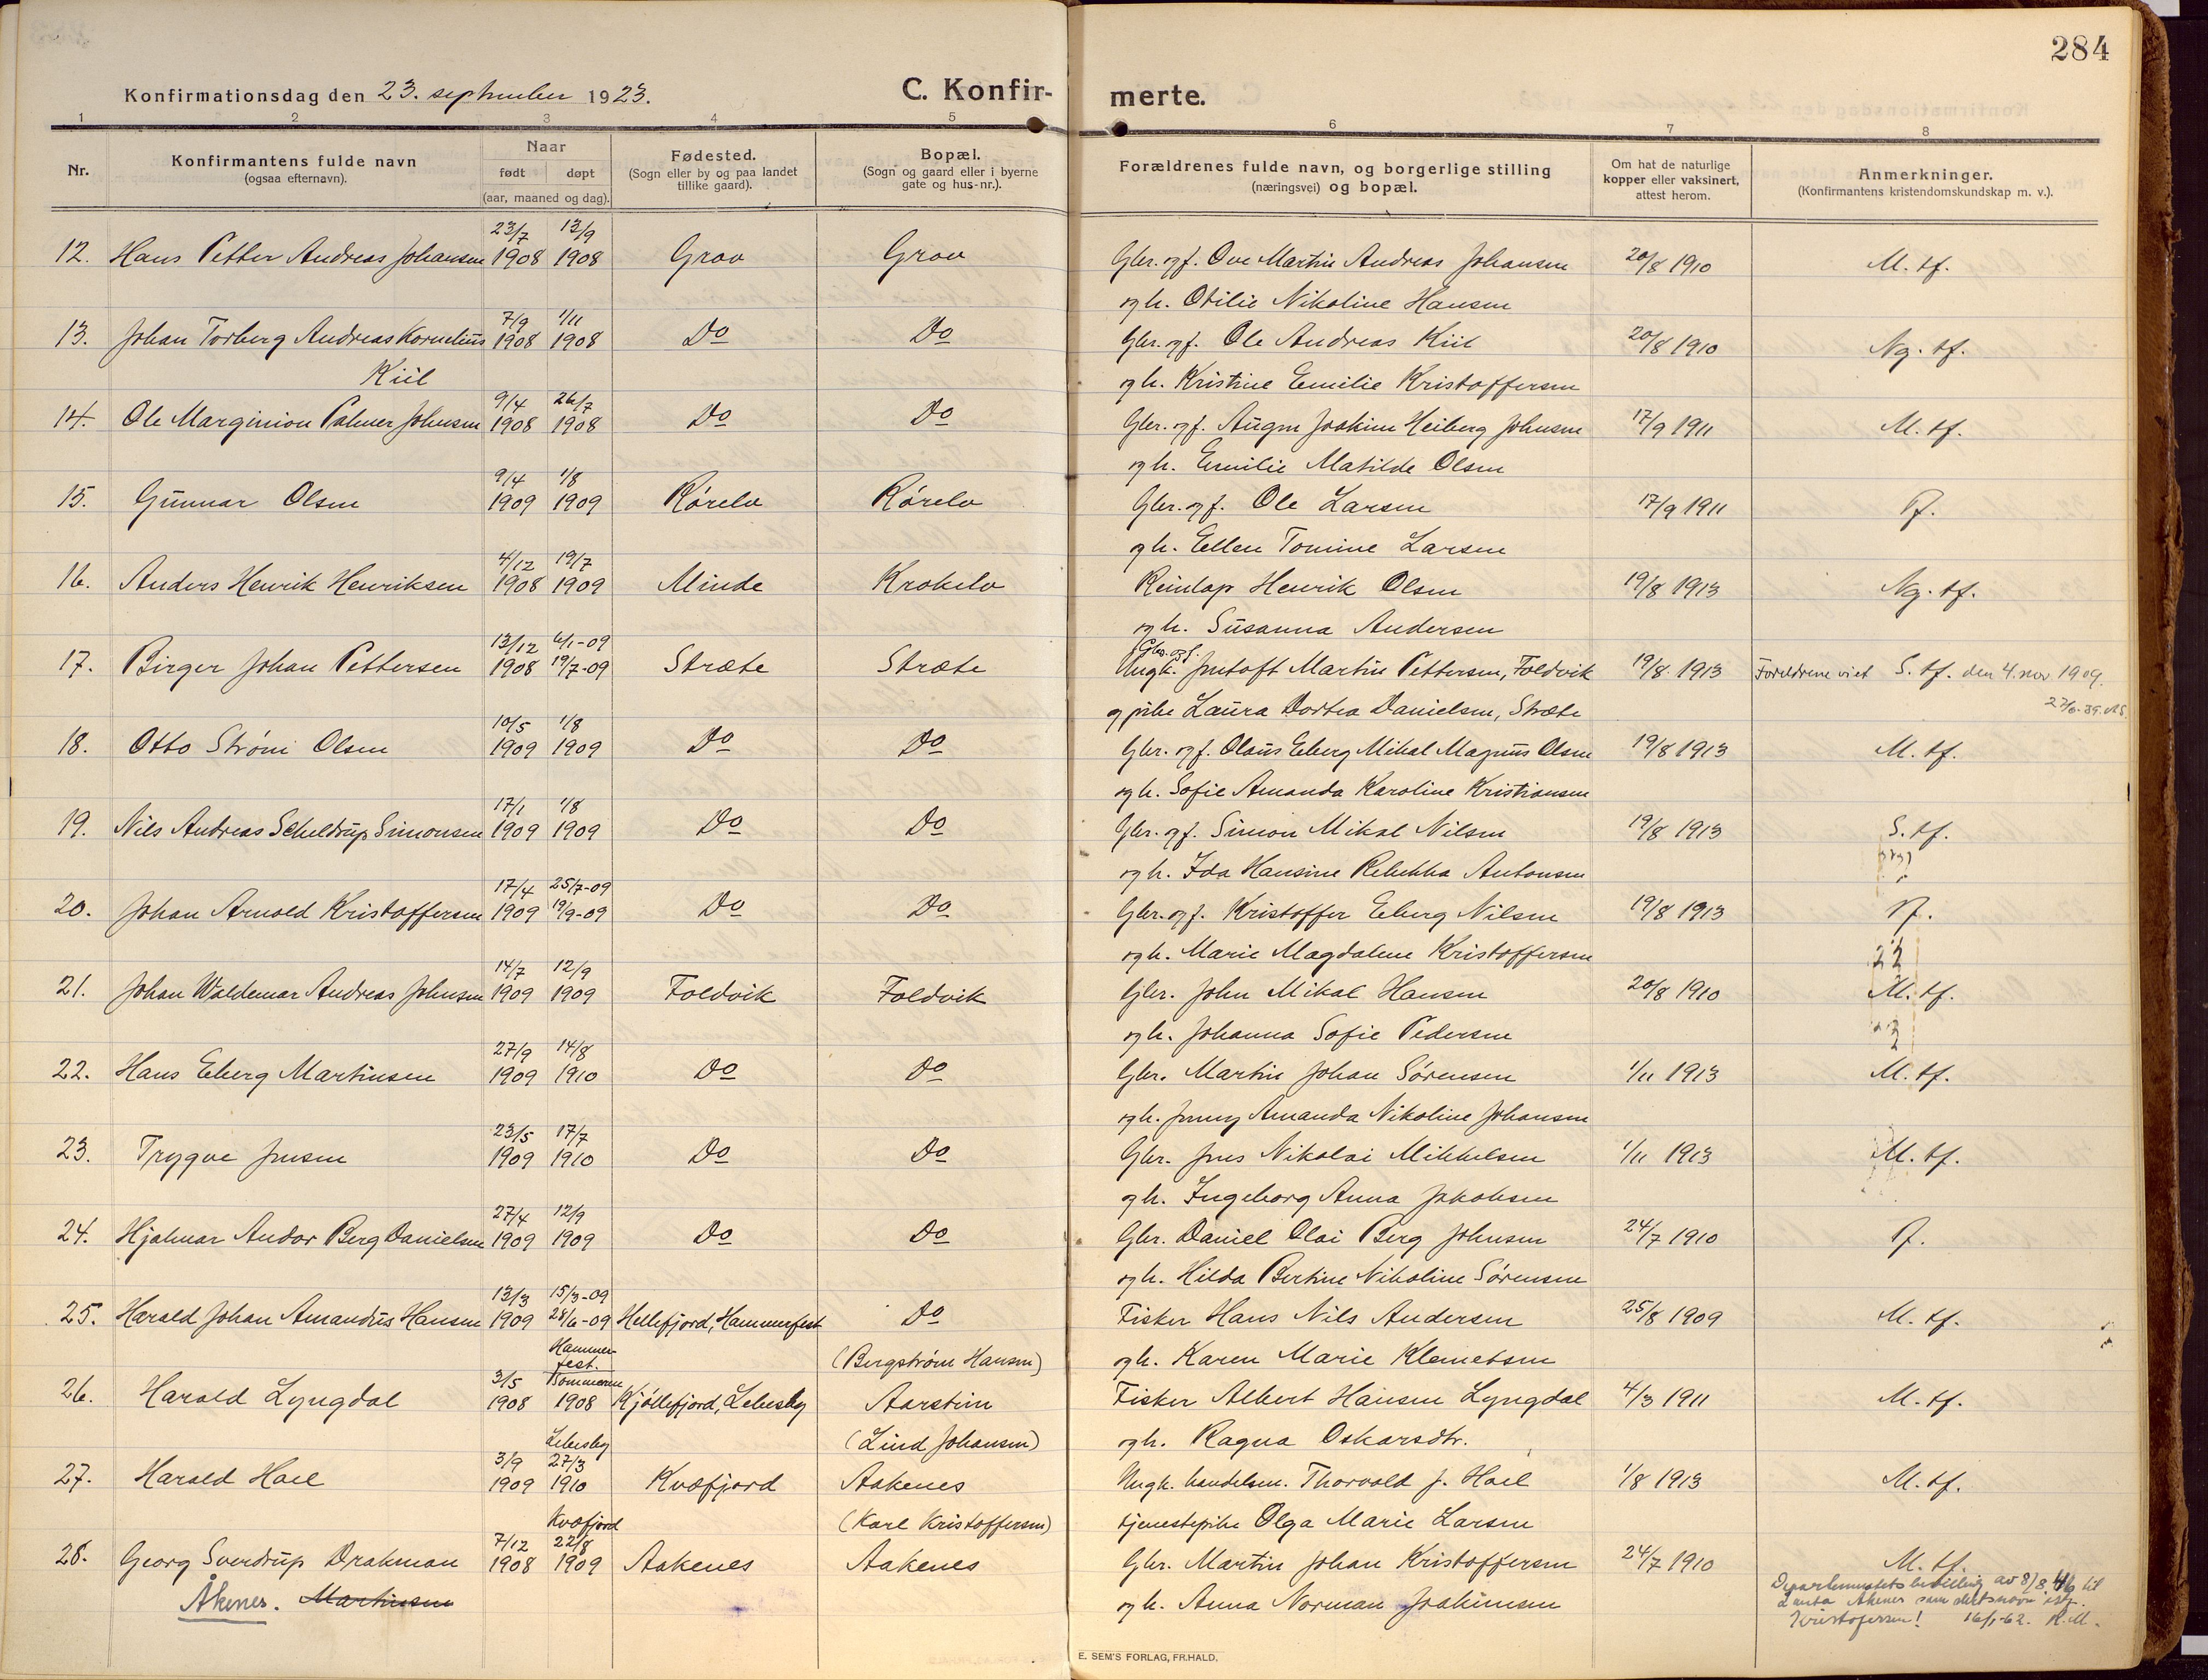 284
Konfirmationsdag den 23. september 1923.
C. Konfir-
merte.
1 2 3 4 5 6 7 8
Nr.
Konfirmantens fulde navn
(ogsaa efternavn).
Naar
født døpt
(aar, maaned og dag).
Fødested.
(Sogn eller by og paa landet
tillike gaard).
Bopæl.
(Sogn og gaard eller i byerne
gate og hus-nr.).
Forældrenes fulde navn, og borgerlige stilling
(næringsvei) og bopæl.
Om hat de naturlige
kopper eller vaksinert,
attest herom.
Anmerkninger.
(Konfirmantens kristendomskundskap m. v.).
23/7 13/9
12. Hans Petter Andreas Johansen 1908 1908 Grov Grov Gbr. og f. Ove Martin Andreas Johansen 20/8 1910 M. tf.
og h. Otilie Nikoline Hansen
7/9 1/11
13. Johan Torberg Andreas Kornelius 1908 1908 Do Do Gbr. og f. Ole Andreas Kiil 20/8 1910 Ng. tf.
Kiil og h. Kristine Emilie Kristoffersen
9/4 26/7
14. Ole Marginion Palmer Johnsen 1908 1908 Do Do Gbr. og f. Augen Joakim Heiberg Johnsen 17/9 1911 M. tf.
og h. Emilie Matilde Olsen
9/4 1/8
15. Gunnar Olsen 1909 1909 Rørelv Rørelv Gbr. og f. Ole Larsen 17/9 1911
og h. Ellen Tomine Larsen
4/12 19/7
16. Anders Henrik Henriksen 1908 1909 Minde Krokelv Reinlap Henrik Olsen 19/8 1913 Ng. tf.
og h. Susanna Andersen
13/12 6/1-09 Gbr. og f.
17. Birger Johan Pettersen 1908 19/7-09 Stræte Stræte Ungk. Jentoft Martin Pettersen, Foldvik 19/8 1913 Foreldrene viet S. tf. den 4. nov 1909.
og pike Laura Dortea Danielsen, Stræte 27/6-39.
10/5 1/8
18. Otto Strøm Olsen 1909 1909 Do Do Gbr. og f. Olaus Eberg Mikal Magnus Olsen 19/8 1913 M. tf.
og h. Sofie Amanda Karoline Kristiansen
17/1 1/8
19. Nils Andreas Scheldrup Simonsen 1909 1909 Do Do Gbr. og f. Simon Mikal Nilsen 19/8 1913 S. tf.
og h. Ida Hansine Rebekka Antonsen
17/4 25/7-09
20. Johan Arnold Kristoffersen 1909 19/9-09 Do Do Gbr. og f. Kristoffer Eberg Nilsen 19/8 1913
og h. Marie Magdalene Kristoffersen
14/7 12/9
21. Johan Waldemar Andreas Johnsen 1909 1909 Foldvik Foldvik Gbr. John Mikal Hansen 20/8 1910 M. tf.
og h. Johanna Sofie Pedersen
27/9 14/8
22. Hans Eberg Martinsen 1909 1910 Do Do Gbr. Martin Johan Sørensen 1/11 1913 M. tf.
og h. Jenny Amanda Nikoline Johansen
23/5 17/7
23. Trygve Jensen 1909 1910 Do Do Gbr. Jens Nikolai Mikkelsen 1/11 1913 M. tf.
og h. Ingeborg Anna Jakobsen
27/4 12/9
24. Hjalmar Andor Berg Danielsen 1909 1909 Do Do Gbr. Daniel Olai Berg Johnsen 24/7 1910
og h. Hilda Bertine Nikoline Sørensen
13/3 15/3-09
25. Harald Johan Amandus Hansen 1909 28/6-09 Hellefjord, Hammerfest Do Fisker Hans Nils Andersen 25/8 1909 M. tf.
Hammerfest. (Bergstrøm Hansen) og h. Karen Marie Klemetsen
3/5 Sommeren
26. Harald Lyngdal 1908 1908 Kjøllefjord, Lebesby Aarstein Fisker Albert Hansen Lyngdal 4/3 1911 M. tf.
Lebesby (Lind Johansen) og h. Ragna Oskarsdtr.
3/9 27/3
27. Harald Hoel 1909 1910 Kvæfjord Aakenes Ungk. handelsm. Thorvald J. Hoel 1/8 1913 M. tf.
Kvæfjord (Karl Kristoffersen) tjenestepike Olga Marie Larsen
7/12 22/8
28. Georg Sverdrup Drakman 1908 1909 Aakenes Aakenes Gbr. Martin Johan Kristoffersen 24/7 1910 M. tf.
Åkenes. Martinsen og h. Anna Norman Joakimsen
Departementets bevilling av 8/8.46 til
Åkenes som slektsnavn istf.
Kristofersen! 16/1-62. K.M.
E. SEM'S FORLAG, FR.HALD.